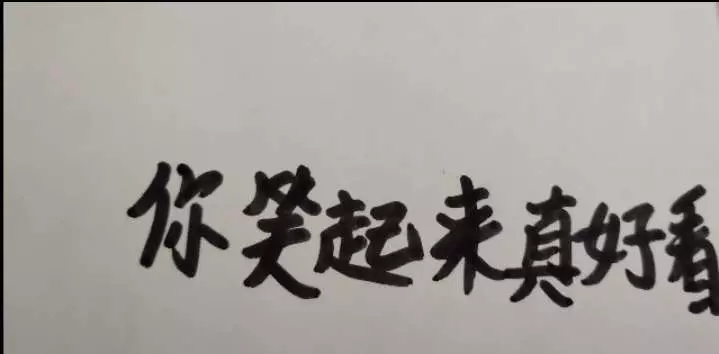 你笑起来真好看